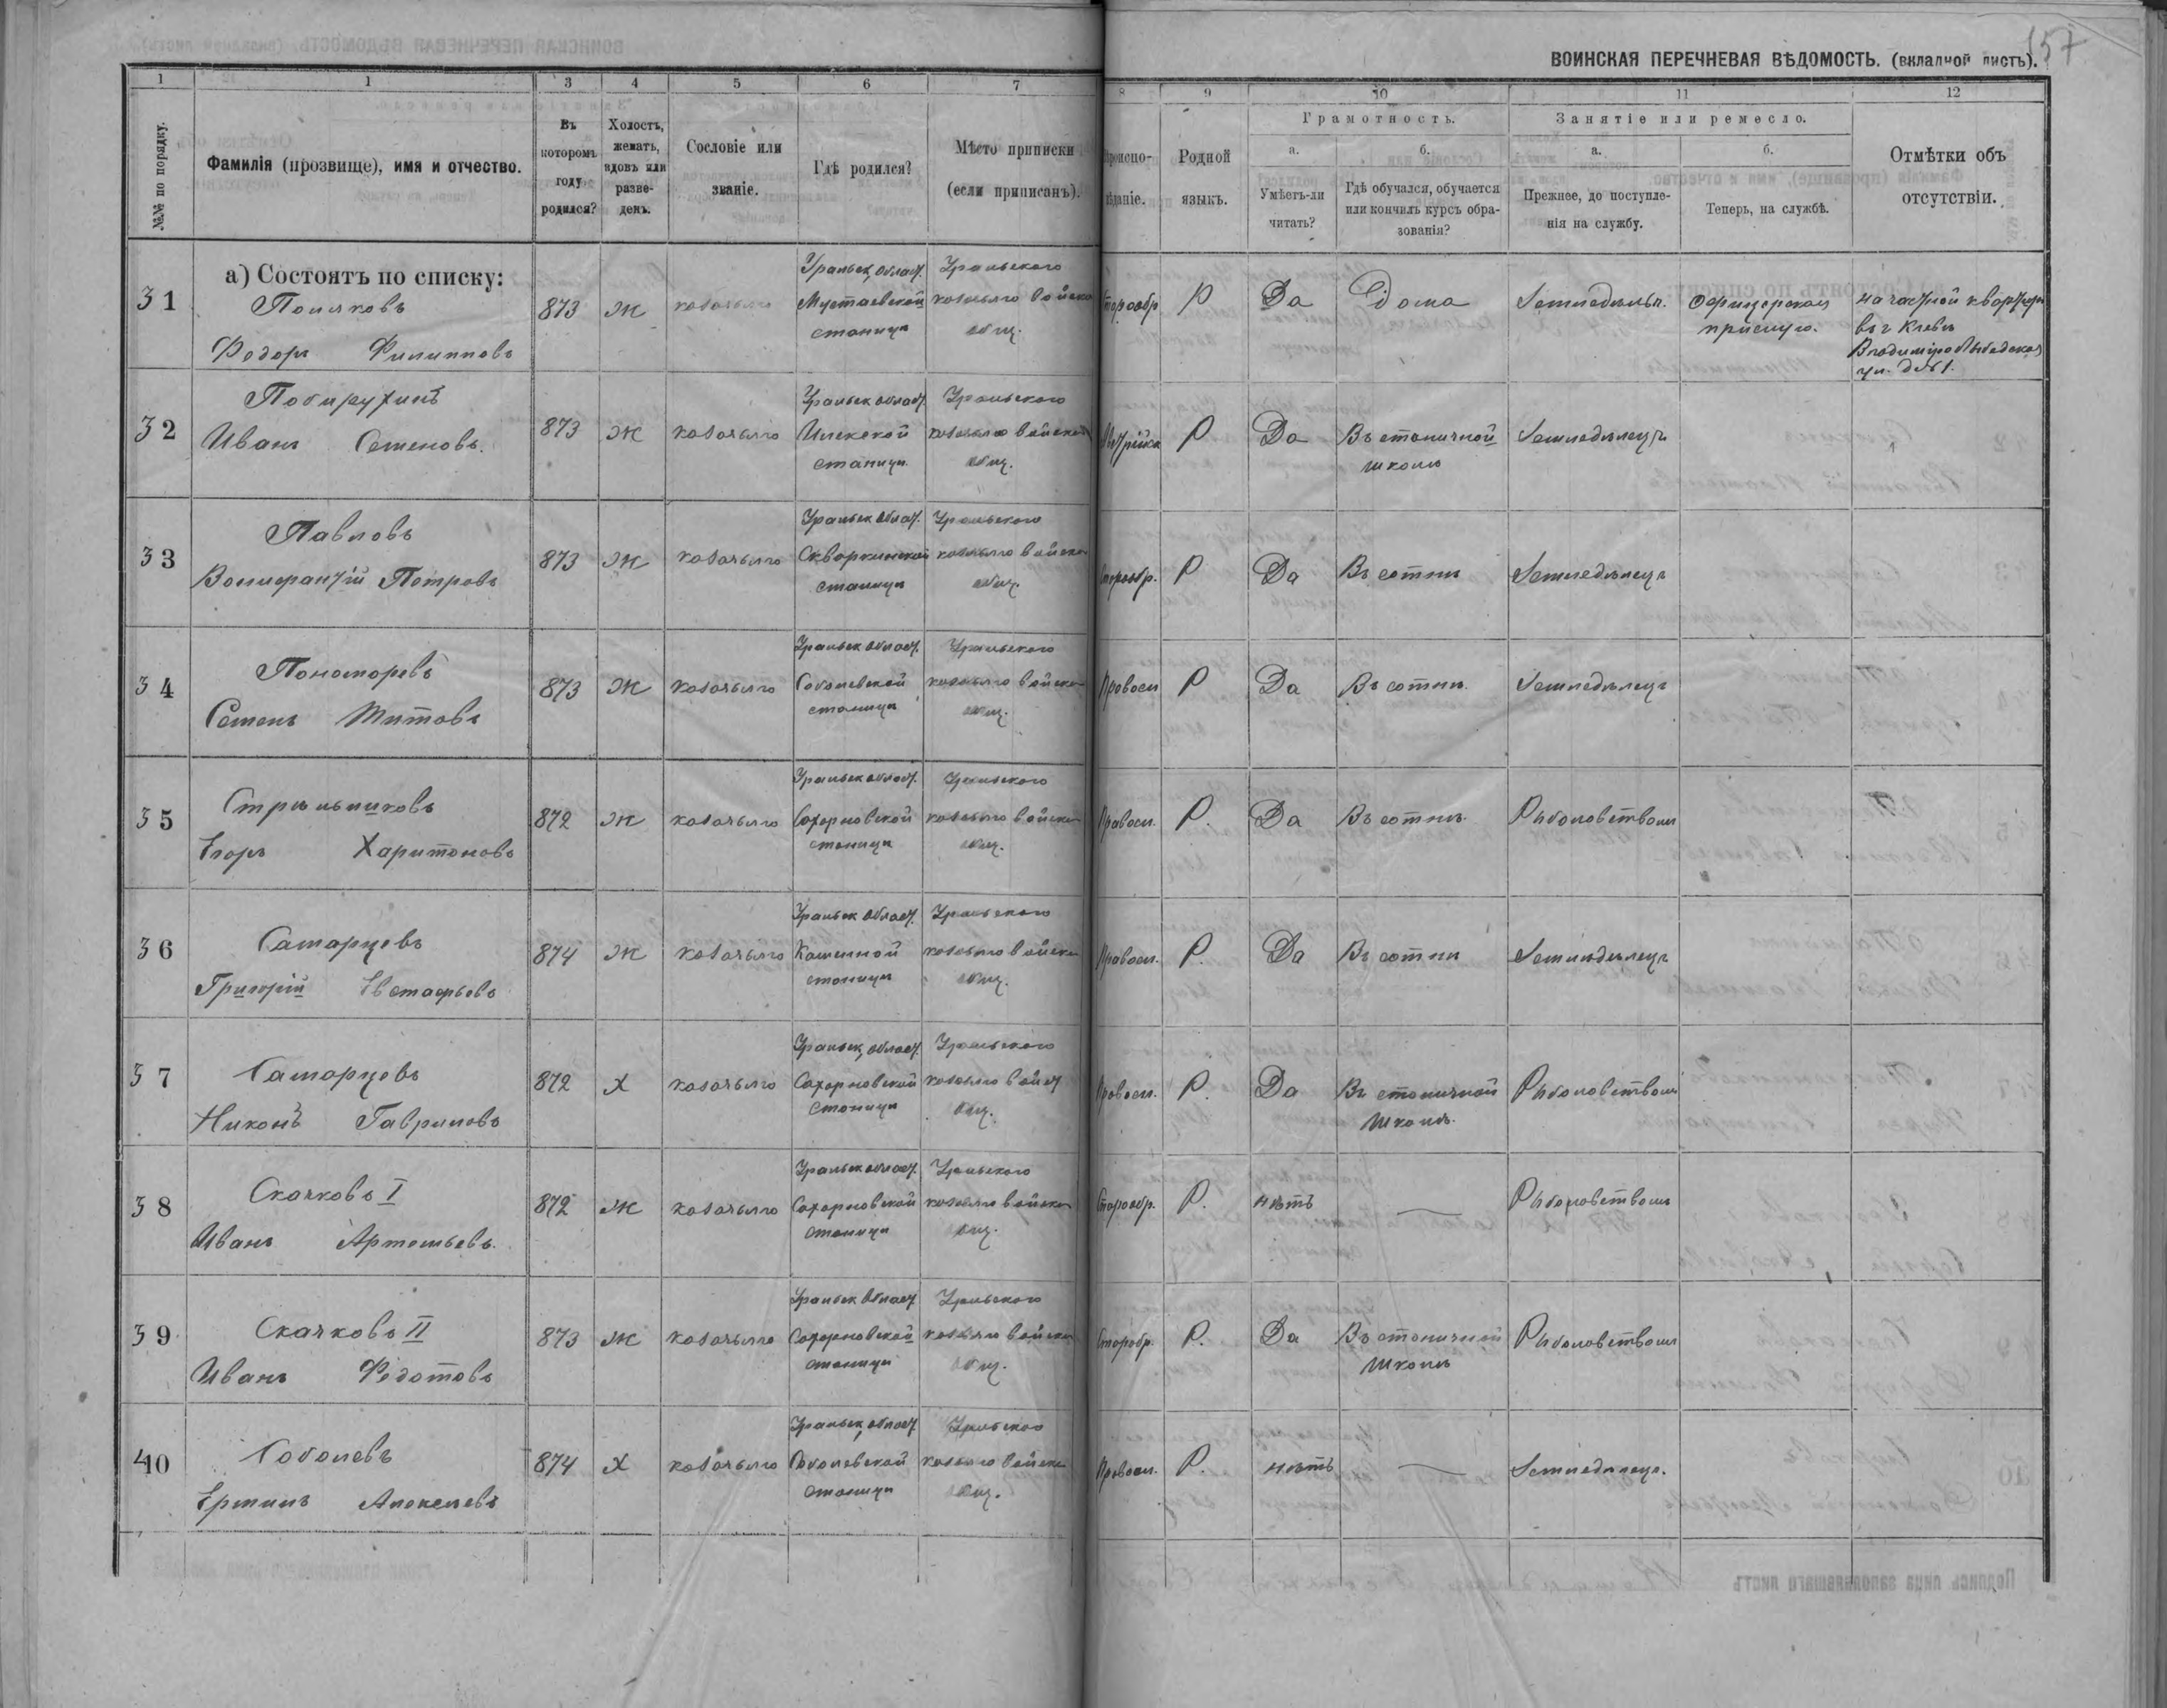 157
ВОИНСКАЯ ПЕРЕЧНЕВАЯ ВѢДОМОСТЬ. (вкладной листъ).
1 1 3 4 5 6 7 8 9 10 11 12
№№ по порядку.
Фамилія (прозвище), имя и отчество.
Въ которомъ году родился?
Холостъ, женатъ, вдовъ или разведенъ.
Сословіе или званіе.
Гдѣ родился?
Мѣсто приписки (если приписанъ).
Вѣроиспо-
вѣданіе.
Родной языкъ.
Грамотность.
а. Умѣетъ-ли читать?
б. Гдѣ обучался, обучается или кончилъ курсъ образованія?
Занятіе или ремесло.
а. Прежнее, до поступленія на службу.
б. Теперь, на службѣ.
Отмѣтки объ отсутствіи.
а) Состоятъ по списку:
31 Поляковъ Федоръ Филипповъ 873 Ж казачьяго Уральск. област. Мустаевской станицы Уральского казачьяго войска общ. Старообр Р Да Дома Земледѣльц. Офицерская прислуга. на частной квартирѣ въ г Кіевѣ Владиміро Лыбедская ул. д №1.
32 Иванъ Семеновъ. 873 Ж казачьяго Уральск област. Илекской станицы Уральского казачьяго войска общ. Р Да Въ станичной школѣ Земледѣлецъ
33 Павловъ Вонифантій Петровъ 873 Ж казачьяго Уральск област. Скворкинской станицы Уральского казачьяго войска общ. Старообр. Р Да Въ сотнѣ Земледѣлецъ
34 Пономаревъ Семенъ Титовъ 873 Ж казачьяго Уральск област. Соболевской станицы Уральского казачьяго войска общ. Правосл Р Да Въ сотнѣ. Земледѣлецъ
35 Стрѣльниковъ Егоръ Харитоновъ 872 Ж казачьяго Уральск област. Сахарновской станицы Уральского казачьяго войска общ. Правосл. Р. Да Въ сотнѣ. Рыболовствомъ
36 Самарцевъ Григорій Евстафьевъ 874 Ж казачьяго Уральск област. Уральского казачьяго войска общ. Правосл. Р. Да Въ сотнѣ Земледѣлецъ
37 Самарцевъ Никонъ Гавриловъ 872 Х казачьяго Уральск, област. Сахарновской станицы Уральского казачьяго войск общ. Правосл. Р. Да Въ станичной школѣ. Рыболовствомъ
38 Скачковъ I Иванъ Артемьевъ. 872 Ж казачьяго Уральск област. Сахарновской станицы Уральского казачьяго войска общ. Старообр. Р. нѣтъ — Рыболовствомъ
39 Скачковъ II Иванъ Федотовъ 873 Ж казачьяго Уральск област Сахарновской станицы Уральского казачьяго войска общ. Старобр. Р. Да Въ станичной школѣ Рыболовствомъ
40 Соболевъ Ермилъ Алексеевъ 874 Х казачьяго Уральск, област Соболевской станицы Уральского казачьяго войска общ. Правосл. Р. нѣтъ — Земледѣлецъ.